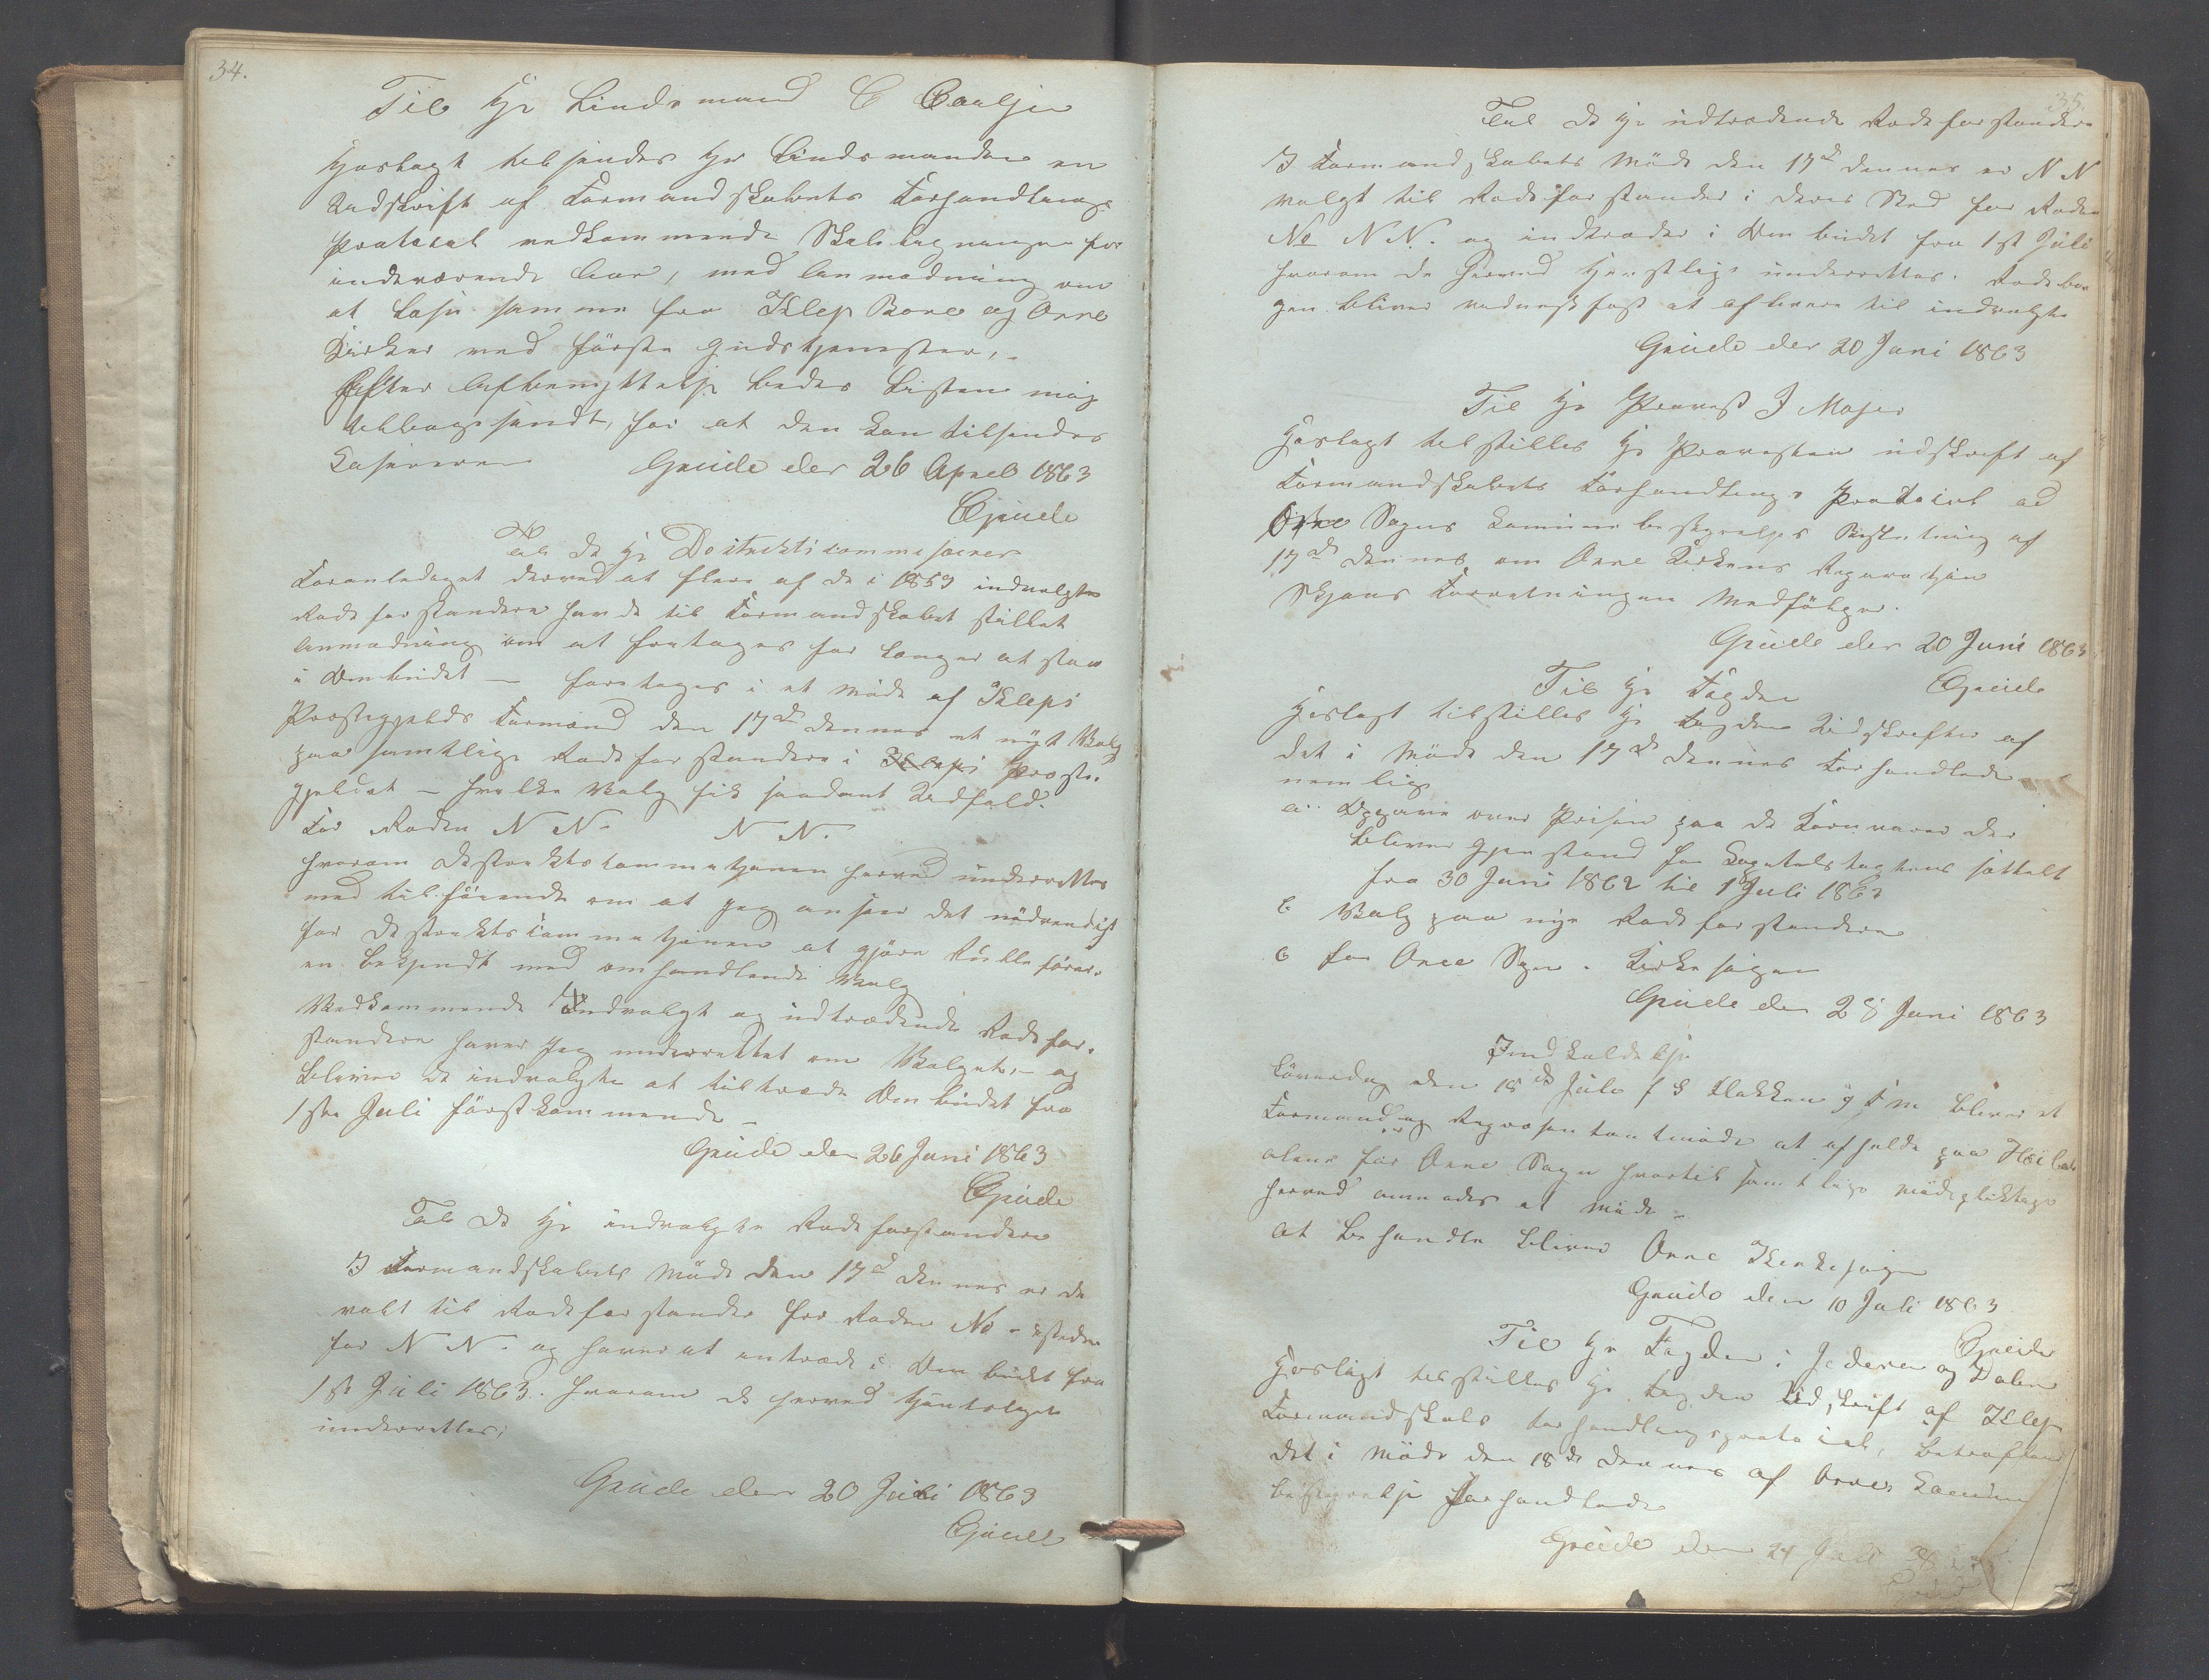 34.
Til Hr Lindsmand C
Hoslagt tilsendes Hr Lindsmanden en
Udskrift af Formandskabets Forhandlings
Protocol vedkommende for
indeværende Aar, med Anmodning om
at læse samme fra Klep Bore og Orre
Kirker ved förste Gudstjenester,
Efter Afbenyttelse bedes Listen mig
tilbagesendt, for at den kan tilsendes
Kasereren Grude den 26 April 1863
Grude
Til de Hr
Foranlediget derved at flere af de i 1859 indvalgte
Rodeforstandere havde til Formandskabet stillet
Anmodning om at fretages for længer at staa
i Ombudet - foretages i et Möde af Kleps
Prestegjelds Formænd den 17de dennes et nyt Valg
paa samtlige Rodeforstandere i Kleps Preste-
gjeldet - hvilke Valg fik saadant Udfald.
For Roden N N. N N.
hvorom herved underrettes
med tilföiende om at jeg anseer det nödvendigt
for at gjöre
en bekjendt med omhandlende Valg
Vedkommende Indvalgt og udtrædende Rodefor-
standere haver jeg underrettet om Valget, - og
bliver de indvalgte at tiltræde Ombudet fra
1ste Juli förstkommende -
Grude den 26 Juni 1863
Grude
Til de Hr indvalgte Rodeforstandere
I Formandskabets Möde den 17d dennes er de
valt til Rodeforstander for Roden No - isteden
for N N. og haver at intræde i Ombudet fra
1ste Juli 1863. hvorom de herved
underrettes,
Grude den 20 Juli 1863
Grude
35.
Til de Hr udtrædende Rodeforstandere
I Formandskabets Möde den 17d dennes er N N
valgt til Rodeforstander i deres Sted for Roden
No N N. og indtræder i Ombudet fra 1st Juli
hvorom de herved tjenstlige underrettes. Rodebo
gen bliver at aflevere til indvalgte
Grude den 20 Juni 1863
Til Hr Provst J
Hoslagt tilstilles Hr Provsten udskrift af
Formandskabets Forhandlings Protocol ad
Orre Sogns Kommunebestyrelses Beslutning af
17de dennes om Orre Kirkens Reparation
Skjøns Forretningen Medfölger.
Grude den 20 Juni 1863
Grude
Til Hr Fogden
Hoslagt tilstilles Hr Fogden Udskrifter af
det i Möde den 17de dennes Forhandlede
nemlig
a Opgave over Prisen paa de Kornvarer der
bliver Gjenstand for Kapitelstagtens fastsatt
fra 30 Juni 1862 til 1 Juli 1863
b Valg paa nye Rodeforstandere
c for Orre Sogn. Kirkesagen
Grude den 28 Juni 1863
Indkaldelse
Löverdag den 18de Juli f S Klokken 9 F m bliver et
Formand og Repræsentantmöde at afholde paa
alene for Orre Sogn hvortil samtlige mödepliktige
herved anmodes at möde -
at behandle bliver Orre Kirkesagen
Grude den 10 Juli 1863
Grude
Til Hr Fogden i Jederen og Dalen
Hoslagt tilstilles Hr Fogden Udskrift af Klep
Formandskabs Forhandlingsprotocol, betræffende
det i Möde den 18de dennes af Orres Kommune
bestyrelse Forhandlede
Grude den 24 Juli